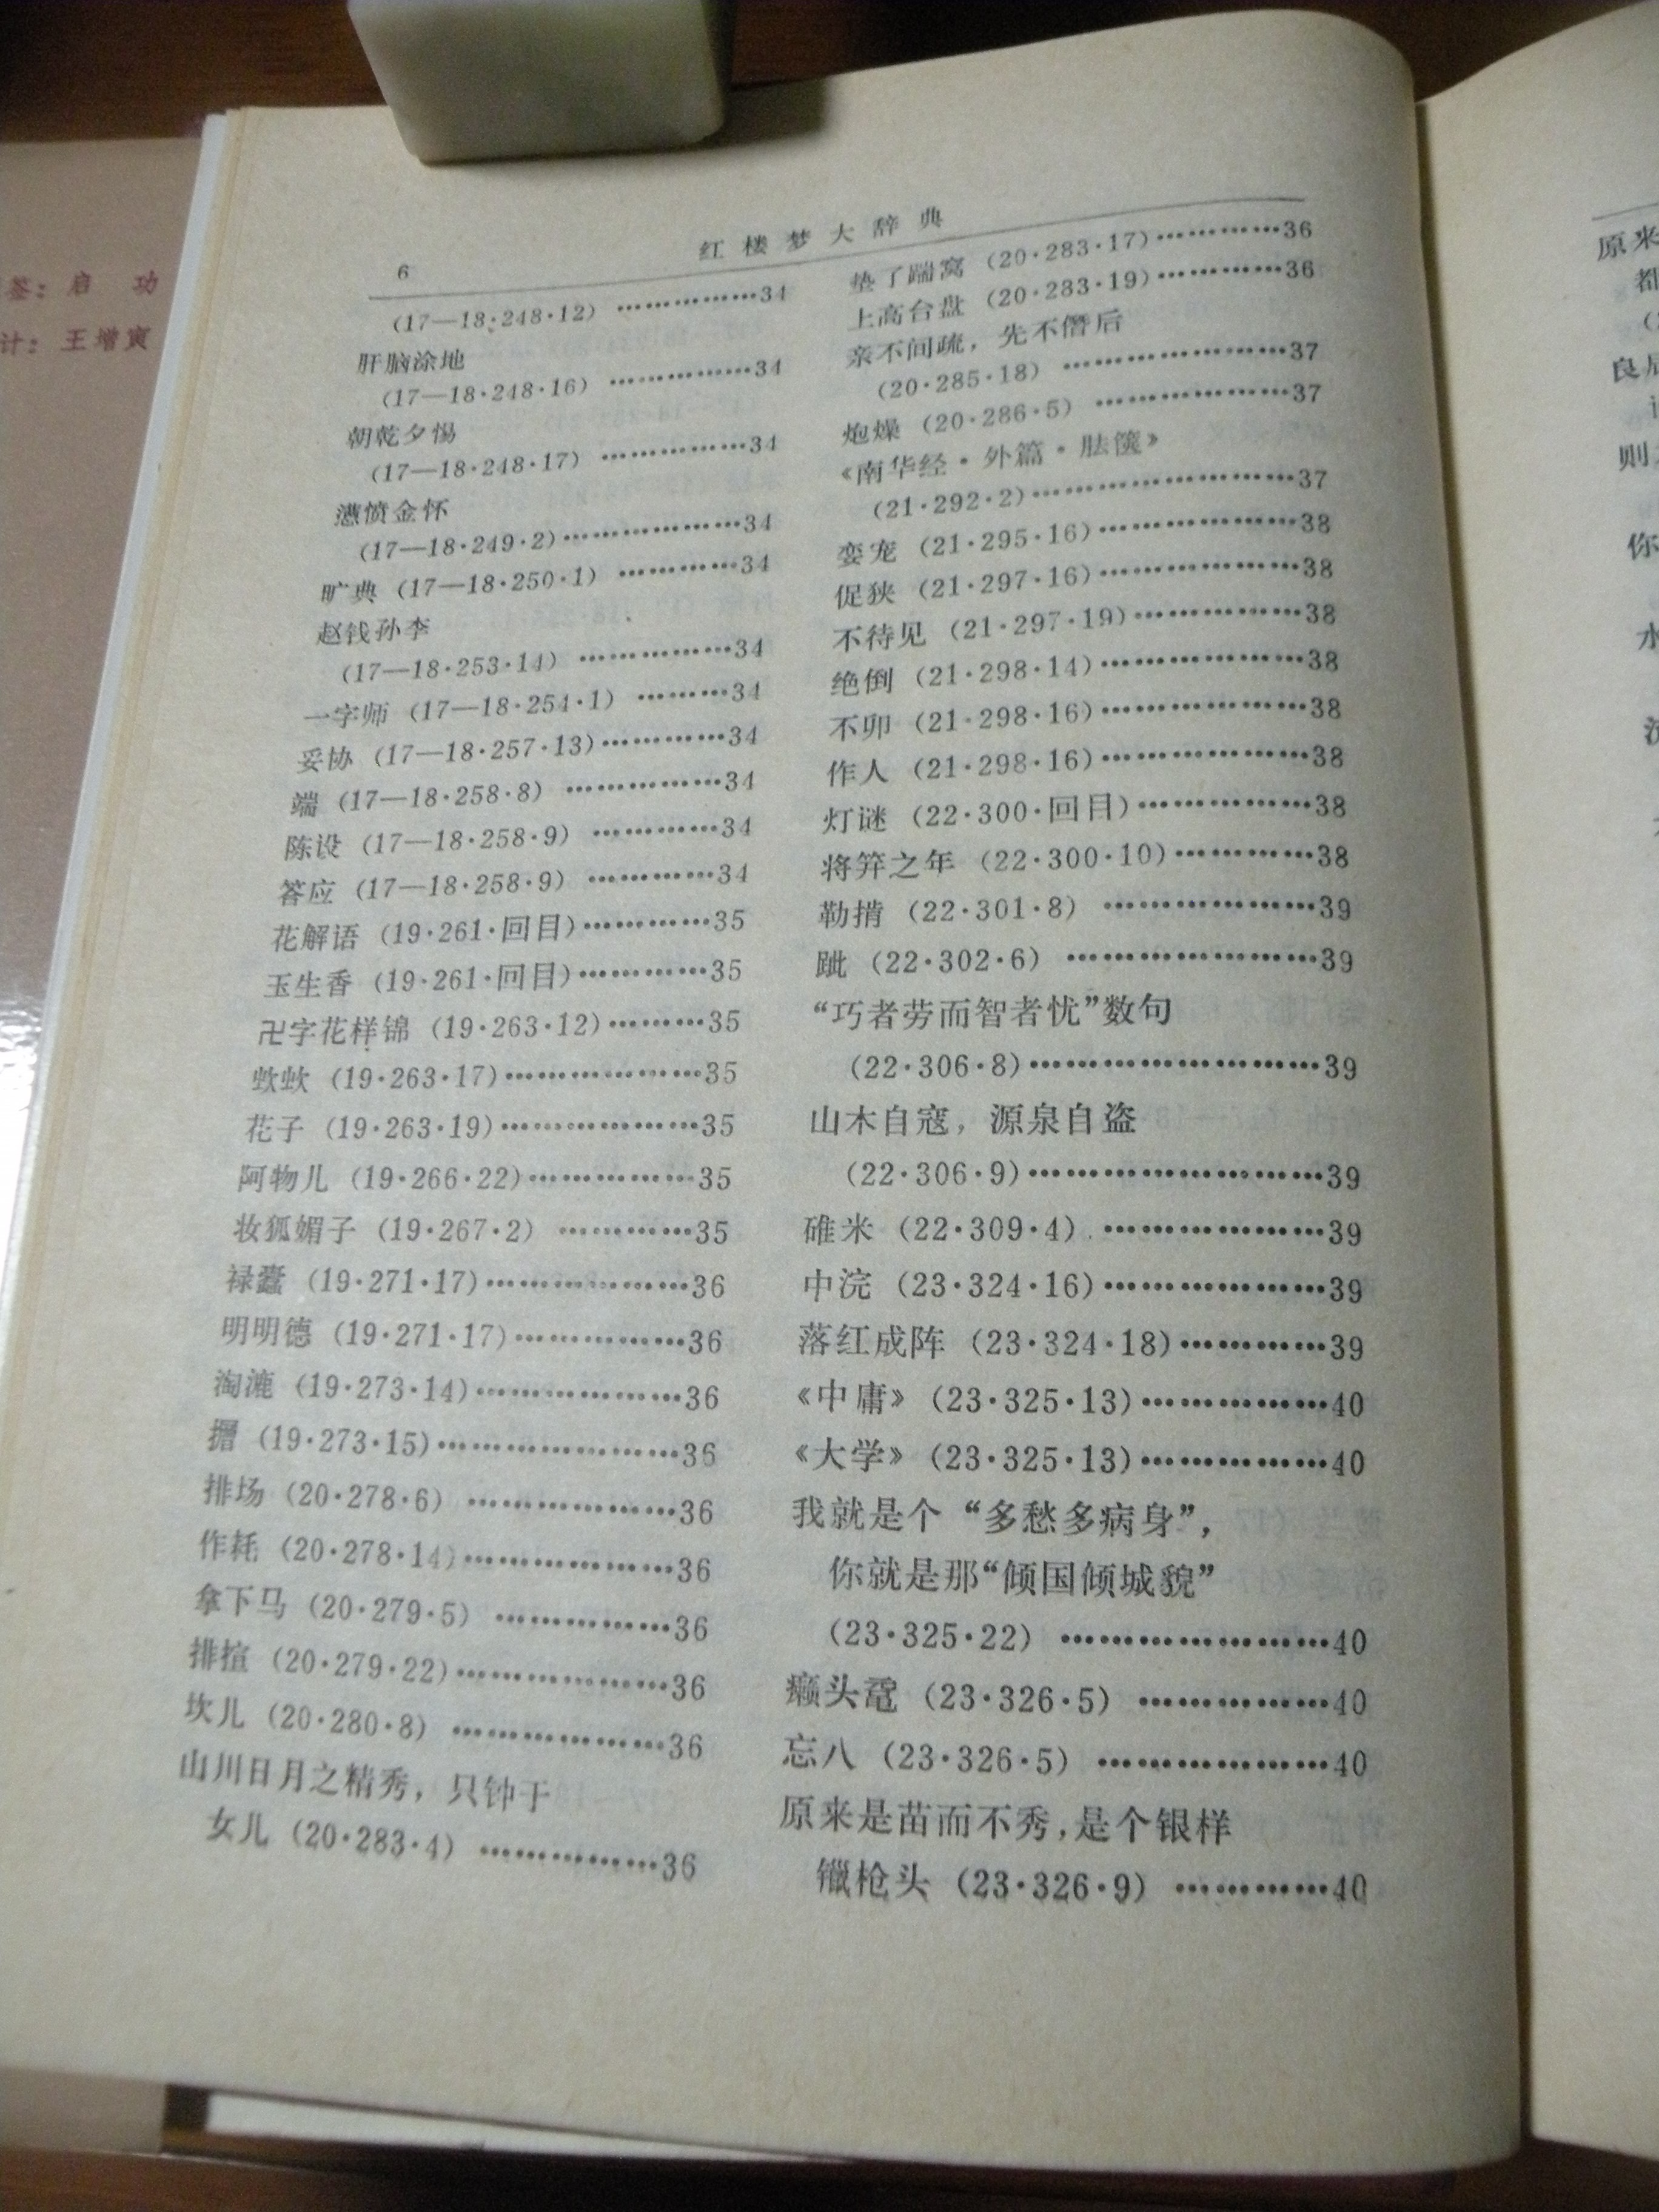 签：启 功
计：王增寅
6
红楼梦大辞典
(17—18·248·12) ……………34
肝脑涂地
(17—18·248·16) ……………34
朝乾夕惕
(17—18·248·17) ……………34
懑愤金怀
(17—18·249·2)………………34
旷典 (17—18·250·1) …………34
赵钱孙李
(17—18·253·14) ……………34
一字师 (17—18·254·1) ………34
妥协 (17—18·257·13)…………34
端 (17—18·258·8) ……………34
陈设 (17—18·258·9) …………34
答应 (17—18·258·9) …………34
花解语 (19·261·回目)…………35
玉生香 (19·261·回目)…………35
卍字花样锦 (19·263·12)………35
蚊蚊 (19·263·17)………………35
花子 (19·263·19)………………35
阿物儿 (19·266·22)……………35
妆狐媚子 (19·267·2) …………35
禄蠹 (19·271·17)………………36
明明德 (19·271·17)……………36
淘漉 (19·273·14)………………36
(19·273·15)……………………36
排场 (20·278·6) ………………36
作耗 (20·278·14)………………36
拿下马 (20·279·5) ……………36
排揎 (20·279·22)………………36
坎儿 (20·280·8) ………………36
山川日月之精秀，只钟于
女儿 (20·283·4) ……………36
垫了踹窝 (20·283·17)…………36
上高台盘 (20·283·19)…………36
亲不间疏，先不僭后
(20·285·18) …………………37
炮燥 (20·286·5) ………………37
《南华经·外篇·胠箧》
(21·292·2)……………………37
娈宠 (21·295·16)………………38
促狭 (21·297·16)………………38
不待见 (21·297·19)……………38
绝倒 (21·298·14)………………38
不卯 (21·298·16)………………38
作人 (21·298·16)………………38
灯谜 (22·300·回目)……………38
将笄之年 (22·300·10)…………38
勒掯 (22·301·8) ………………39
跐 (22·302·6) …………………39
“巧者劳而智者忧”数句
(22·306·8)……………………39
山木自寇，源泉自盗
(22·306·9)……………………39
碓米 (22·309·4) ………………39
中浣 (23·324·16)………………39
落红成阵 (23·324·18)…………39
《中庸》(23·325·13)……………40
《大学》(23·325·13)……………40
我就是个“多愁多病身”，
你就是那“倾国倾城貌”
(23·325·22) …………………40
癞头鼋 (23·326·5) ……………40
忘八 (23·326·5) ………………40
原来是苗而不秀，是个银样
镴枪头 (23·326·9) …………40
原来
都
良辰
则
你
水